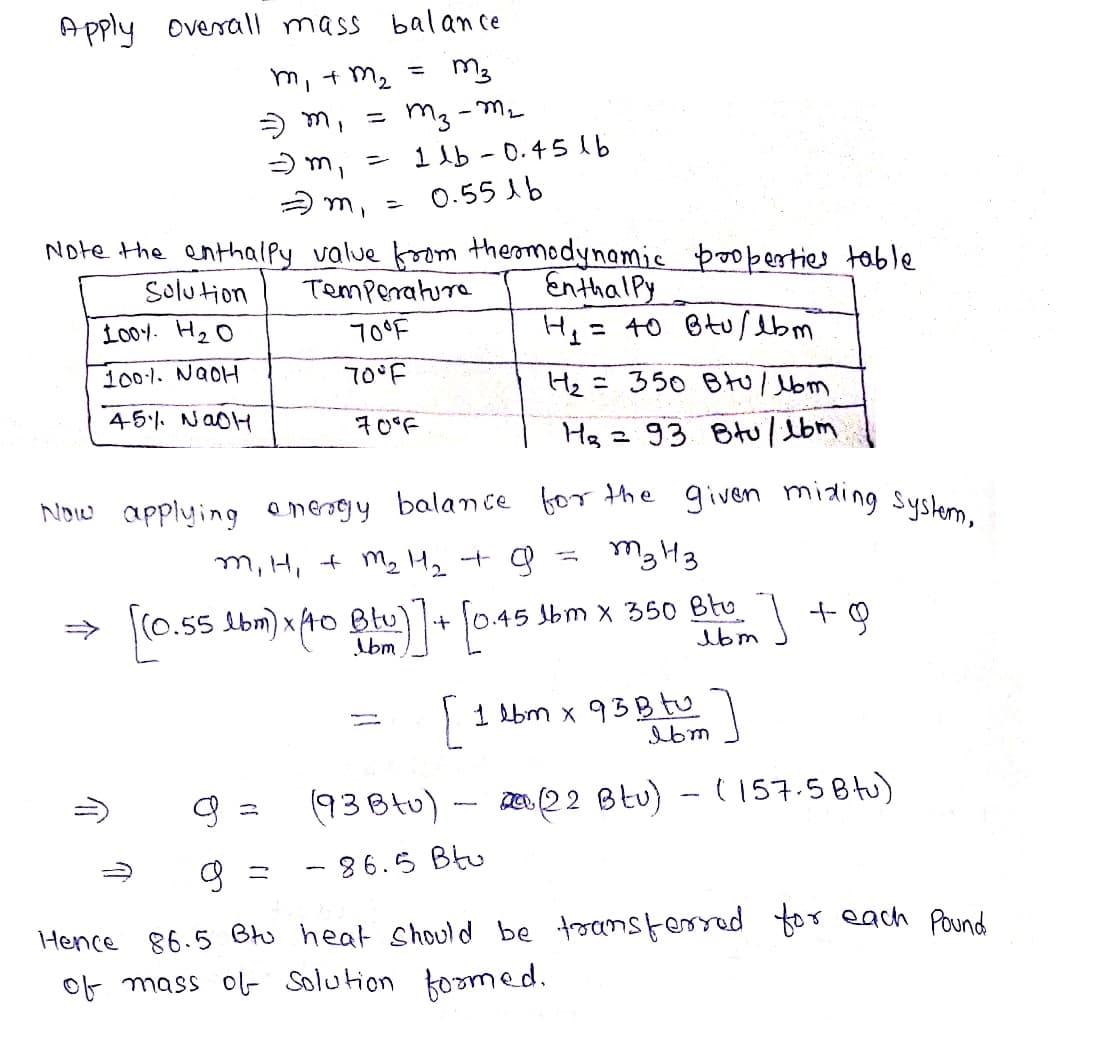 Apply overall mass balance
m₁ + m₂ = m₃
⇒ m₁ = m₃ - m₂
⇒ m₁ = 1 lb - 0.45 lb
⇒ m₁ = 0.55 lb
Note the enthalpy value from thermodynamic properties table
Solution Temperature Enthalpy
100% H₂O 70°F H₁ = 40 Btu/lbm
100% NaOH 70°F H₂ = 350 Btu/lbm
45% NaOH 70°F H₃ = 93 Btu/lbm
Now applying energy balance for the given mixing system,
m₁H₁ + m₂H₂ + q = m₃H₃
⇒ [(0.55 lbm) x (40 Btu/lbm)] + [0.45 lbm x 350 Btu/lbm] + q
= [1 lbm x 93 Btu/lbm]
⇒ q = (93 Btu) - (22 Btu) - (157.5 Btu)
⇒ q = - 86.5 Btu
Hence 86.5 Btu heat should be transferred for each Pound
of mass of solution formed.